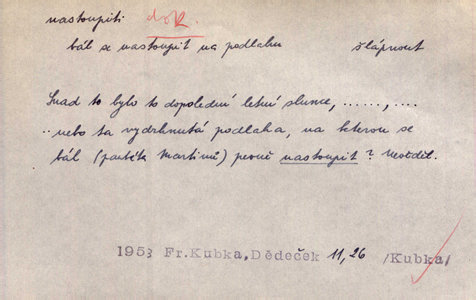 nastoupiti dok.
bál se nastoupit na podlahu šlápnout
Snad to bylo to dopolední letní slunce, ......, ....
.. nebo ta vydrhnutá podlaha, na kterou se
bál (parťák Martinů) pevně nastoupit? Nevěděl.
1953 Fr.Kubka, Dědeček 11,26 /Kubka/